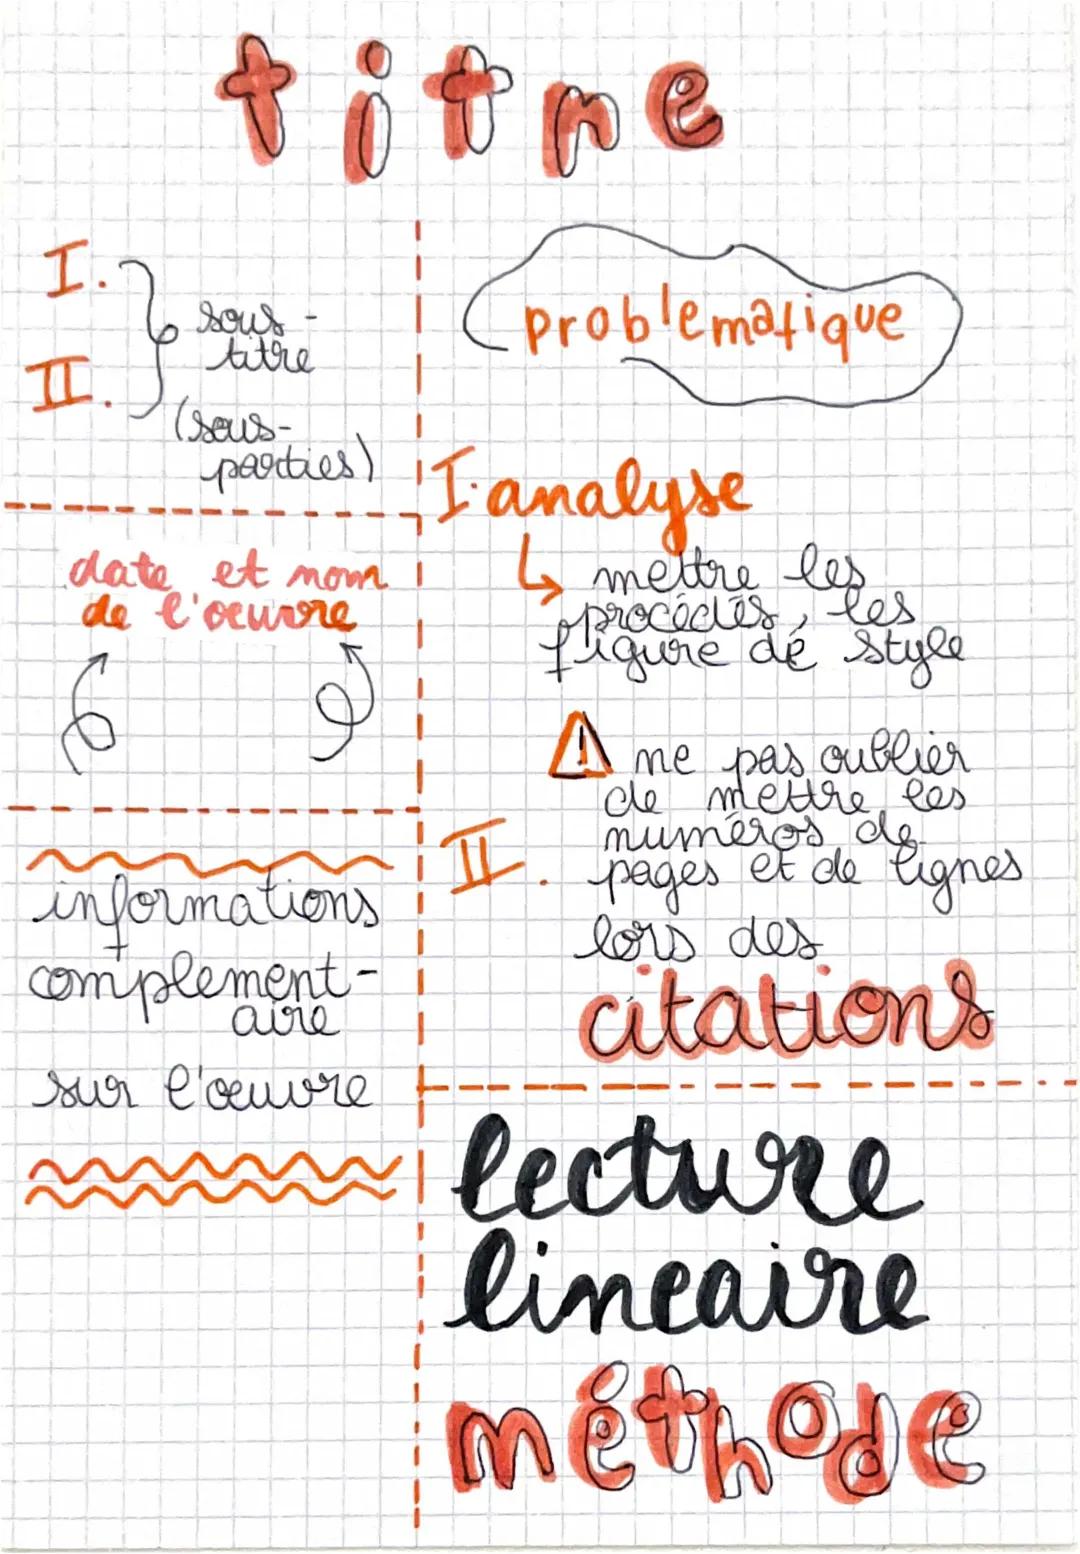 titre
I.
II.
sous-
titre
(sous-
parties)
date et nom
de l'œuvre
informations
complement-
aire
sur l'œuvre
problematique
I. analyse
mettre les
procédés, les
figure de style
! ne pas oublier
de mettre les
numéros de
II. pages et de lignes
lors des
citations
lecture
lineaire
méthode